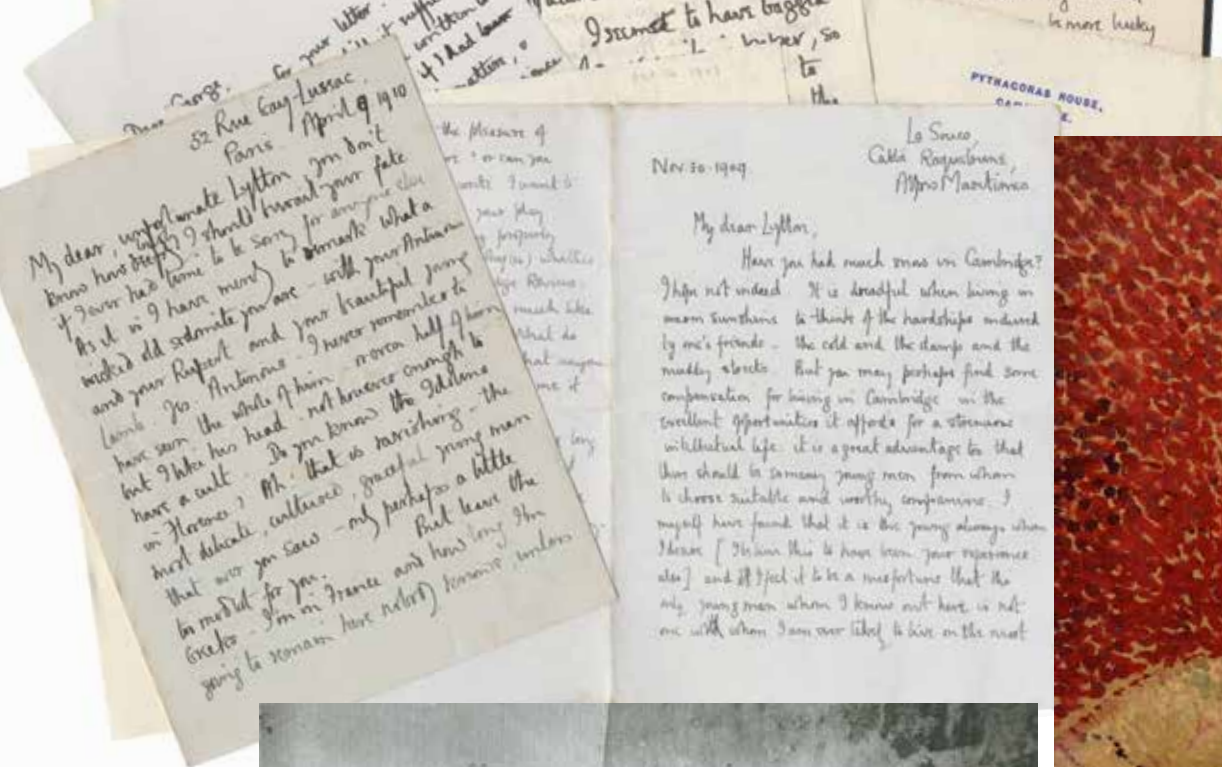 for your letter.
George,
I seemed to have bagged
so
to
the
be more lucky
PYTHAGORAS HOUSE,
52 Rue Gay-Lussac.
Paris April 9 1910
My dear, unfortunate Lytton, you don't
know how deeply I should bewail your fate
if I ever had time to be sorry for anyone else
As it is I have merely to remark what a
wicked old sodomite you are - with your Antinous
and your Rupert and your beautiful young
Lamb. Yes Antinous - I never remember to
have seen the whole of him nor even half of him
but I like his head, not however enough to
have a cult. Do you know the Idolino
in Florence? Ah! that is ravishing - the
most delicate, cultured, graceful young man
that ever you saw - only perhaps a little
too modest for you. But leave the
Greeks. I'm in France and how long I'm
going to remain here nobody knows, unless
the pleasure of
or can you
write I want to
your play
properly
whether
Review.
much like
what do
that anyone
me if
long
Le Souco,
Cabbé Roquebrune,
Alpes Maritimes
Nov. 30. 1909
My dear Lytton,
Have you had much snow in Cambridge?
I hope not indeed. It is dreadful when living in
warm sunshine to think of the hardships endured
by one's friends - the cold and the damp and the
muddy streets. But you may perhaps find some
compensation for living in Cambridge in the
excellent opportunities it affords for a strenuous
intellectual life. it is a great advantage too that
there should be so many young men from whom
to choose suitable and worthy companions. I
myself have found that it is the young always whom
I desire [I believe this to have been your experience
also] and I feel it to be a misfortune that the
only young man whom I know out here is not
one with whom I am ever likely to live on the most